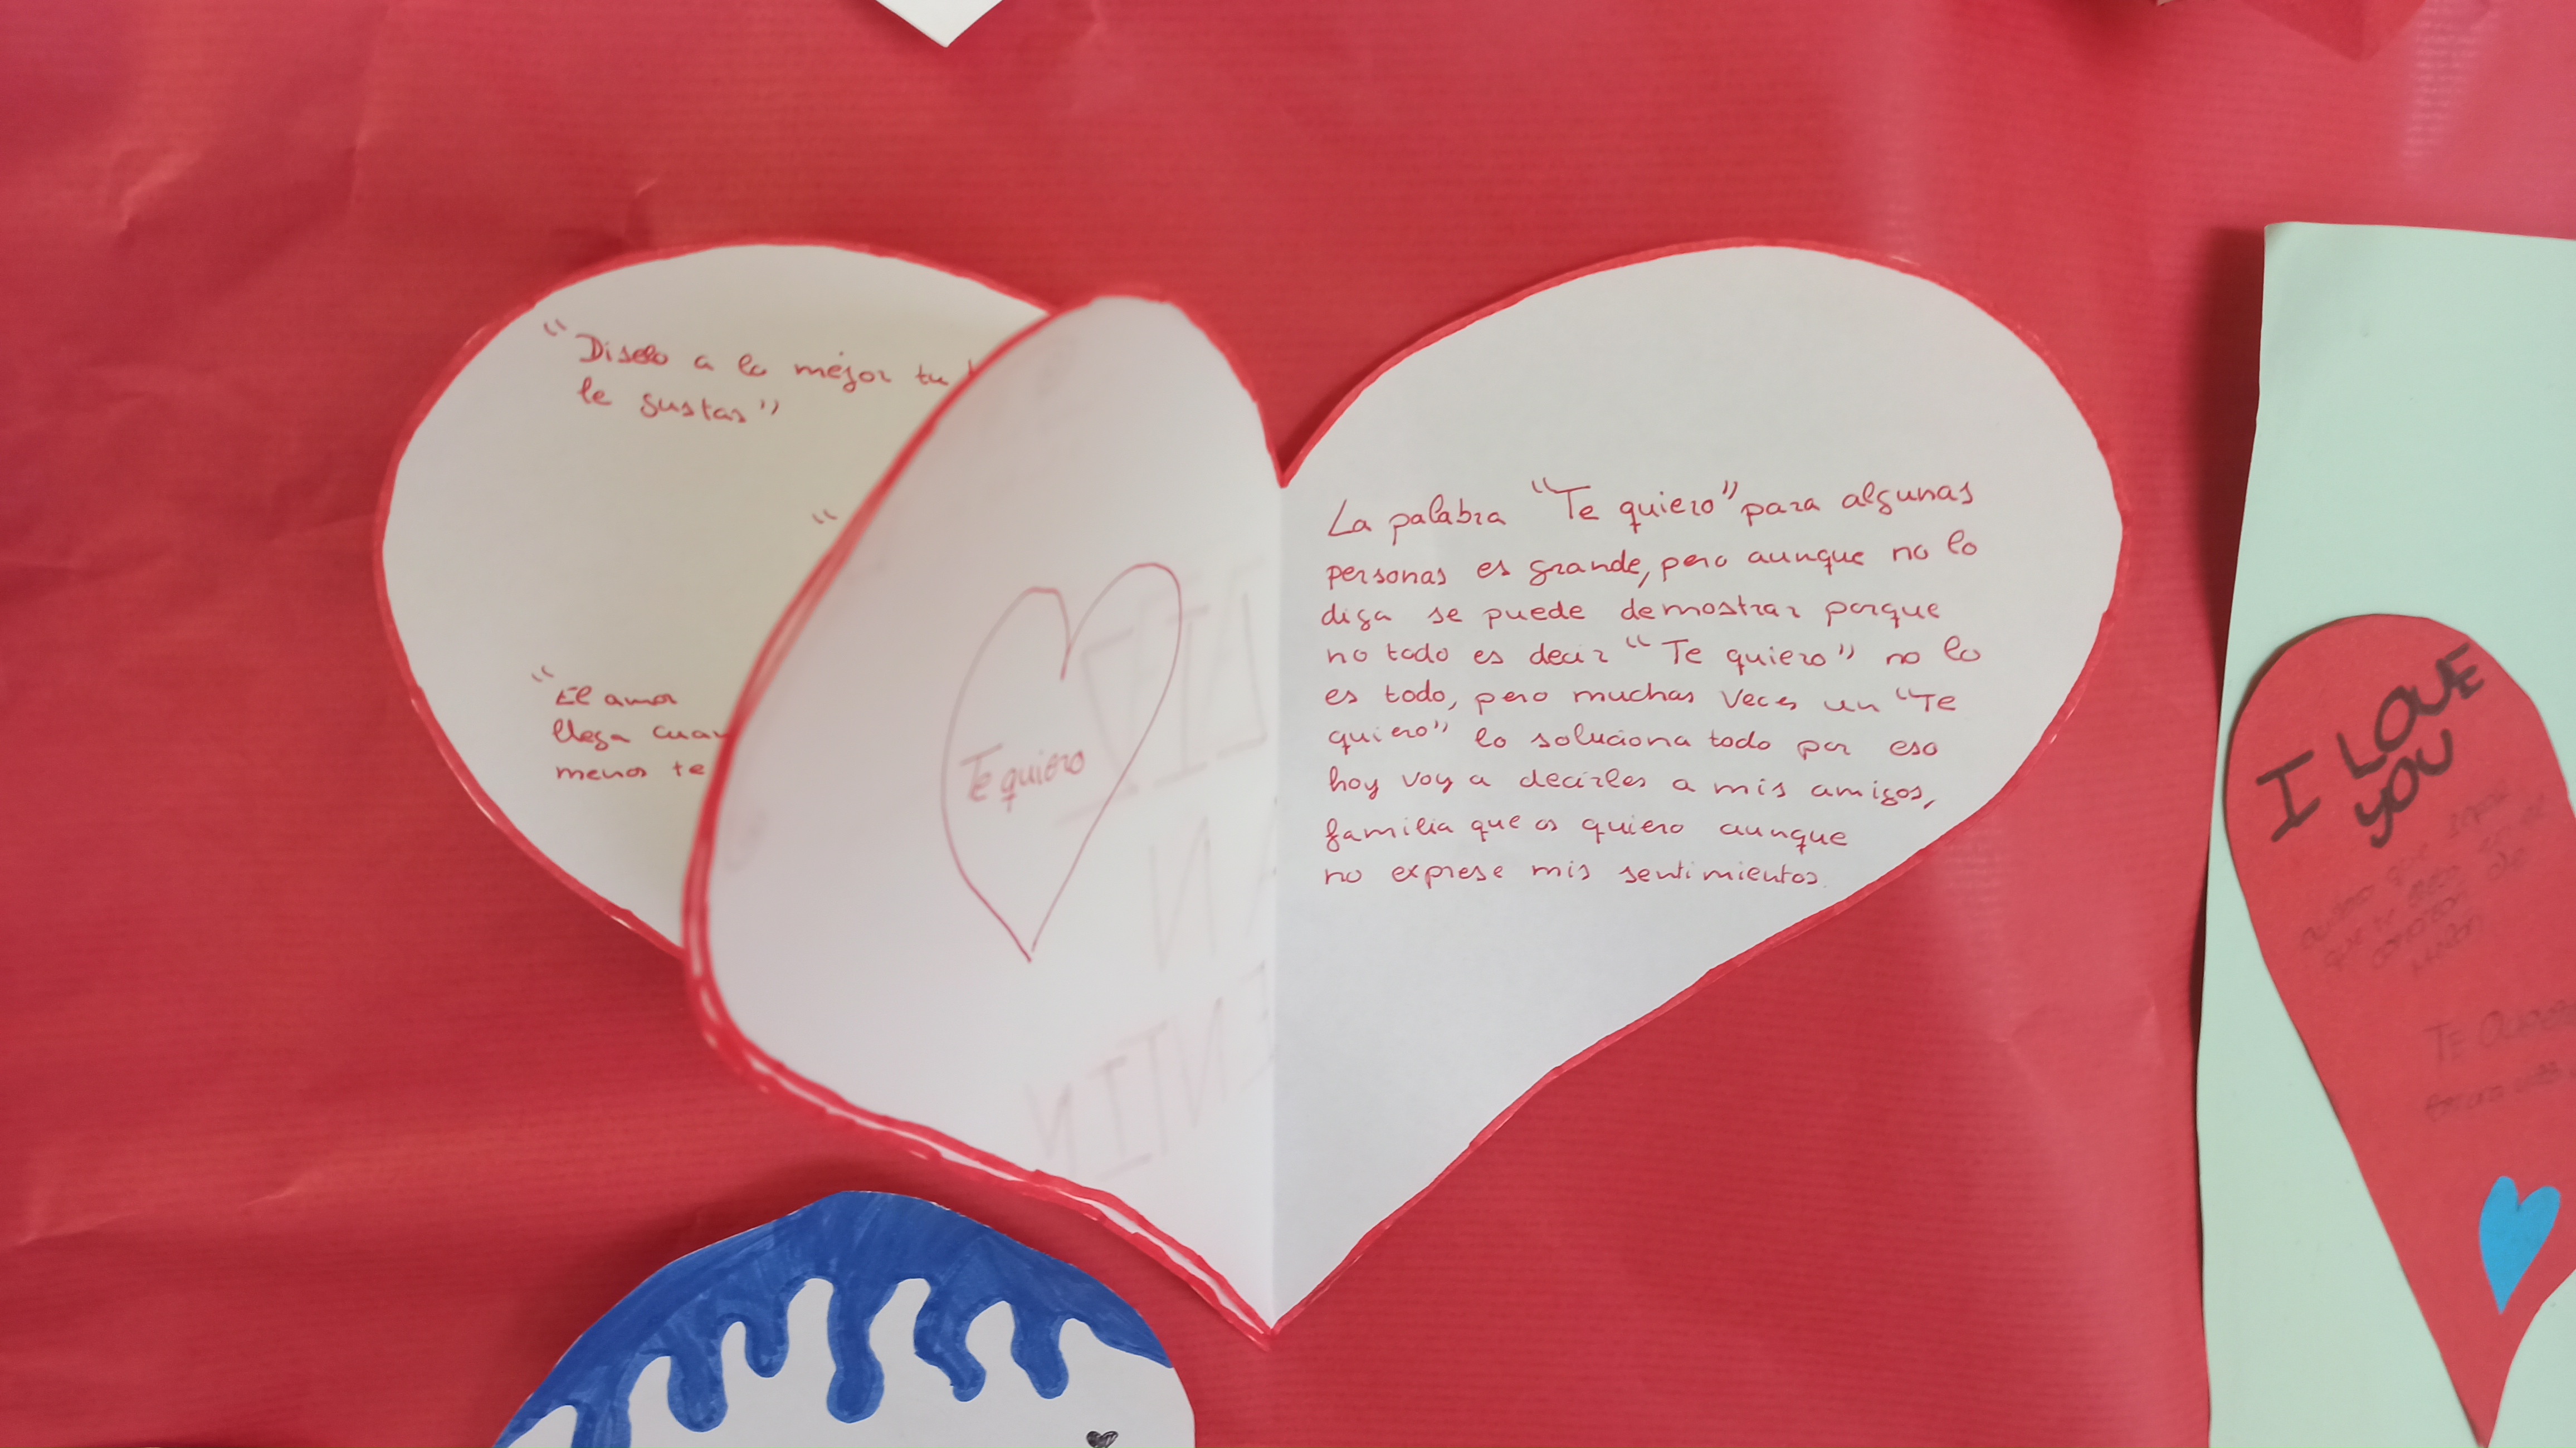 "Diselo a lo mejor tu
le gustas"
"
"El amor
llega
menos te
Te quiero
La palabra "Te quiero" para algunas
personas es grande, pero aunque no lo
diga se puede demostrar porque
no todo es decir "Te quiero" no lo
es todo, pero muchas veces un "Te
quiero" lo soluciona todo por eso
hoy voy a decirles a mis amigos,
familia que os quiero aunque
no exprese mis sentimientos.
I LOVE
YOU
que te
TE